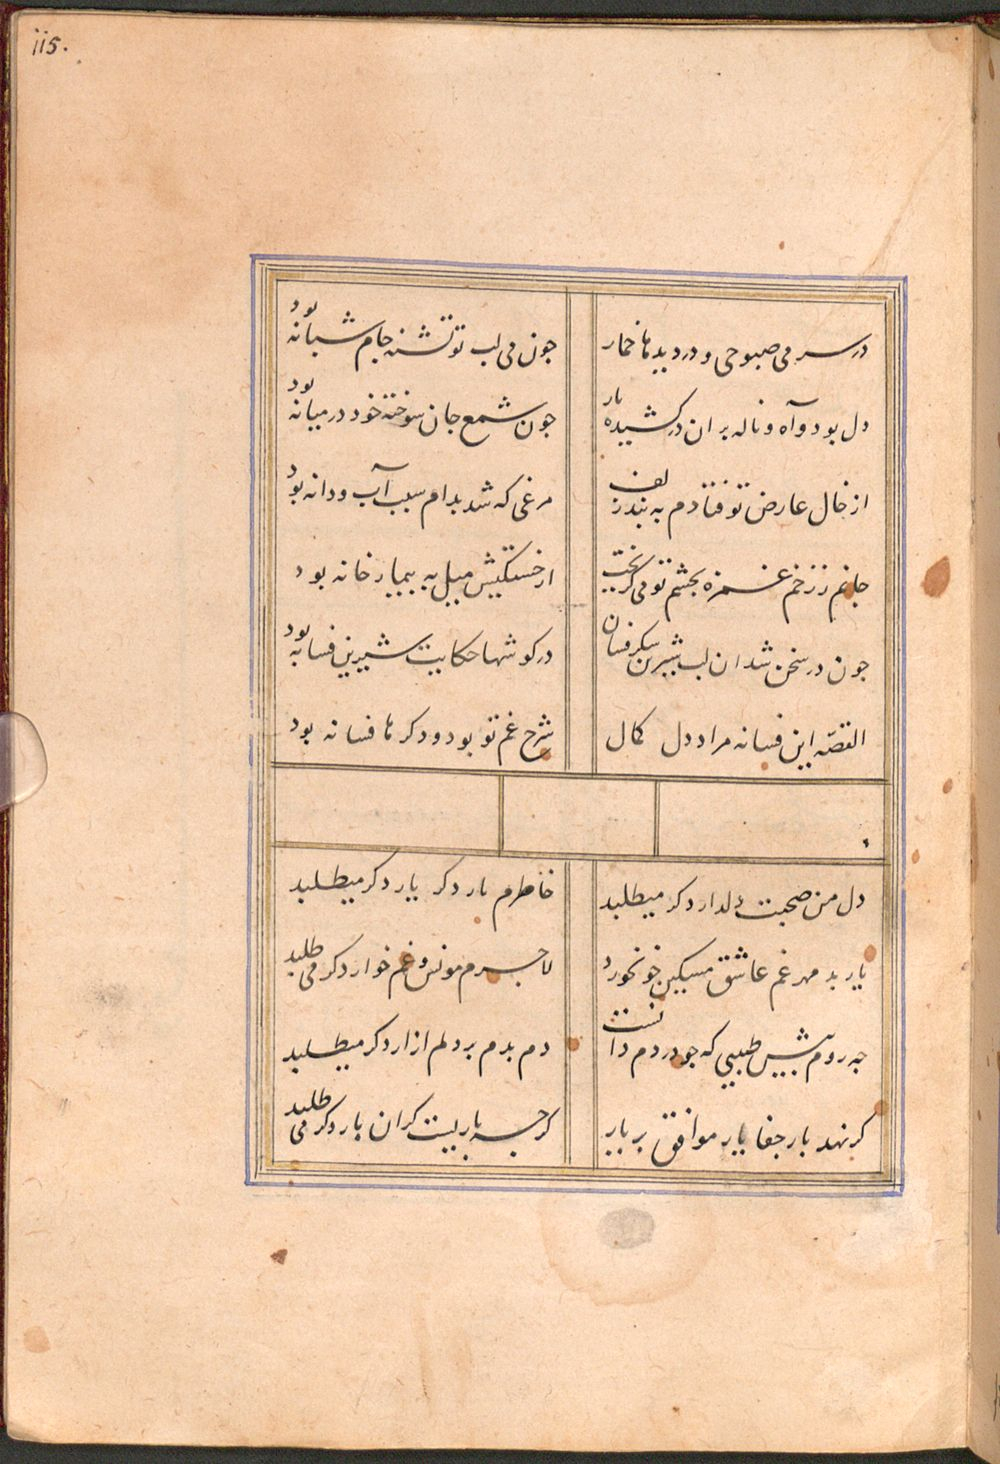 115.
در سر می صبوحی و در دیدها خمار
جون می لب تو تشنه جام شبانه بود
دل بود و آه و ناله بر ان در کشیده بار
جون شمع جان سوخته خود در میانه بود
از خال عارض تو فتادم به بند زلف
مرغی که شد بدام سبب آب و دانه بود
جانم ز زخم غمزه بجشم تو می کریخت
از خستکیش میل به بیمار خانه بود
جون در سخن شد ان لب شیرین شکر فشان
در کوشها حکایت شیرین فسانه بود
القصه این فسانه مراد دل کمال
شرح غم تو بود و دکرها فسانه بود
دل من صحبت دلدار دکر میطلبد
خاطرم یار دکر یار دکر میطلبد
یار بد مهر غم عاشق مسکین جو نخورد
لاجرم مونس و غم خوار دکر می طلبد
جه روم پیش طبیبی که جو دردم دانست
دم بدم بر دلم ازار دکر میطلبد
کر نهد بار جفا یار موافق بر یار
کرجه باریست کران بار دکر می طلبد